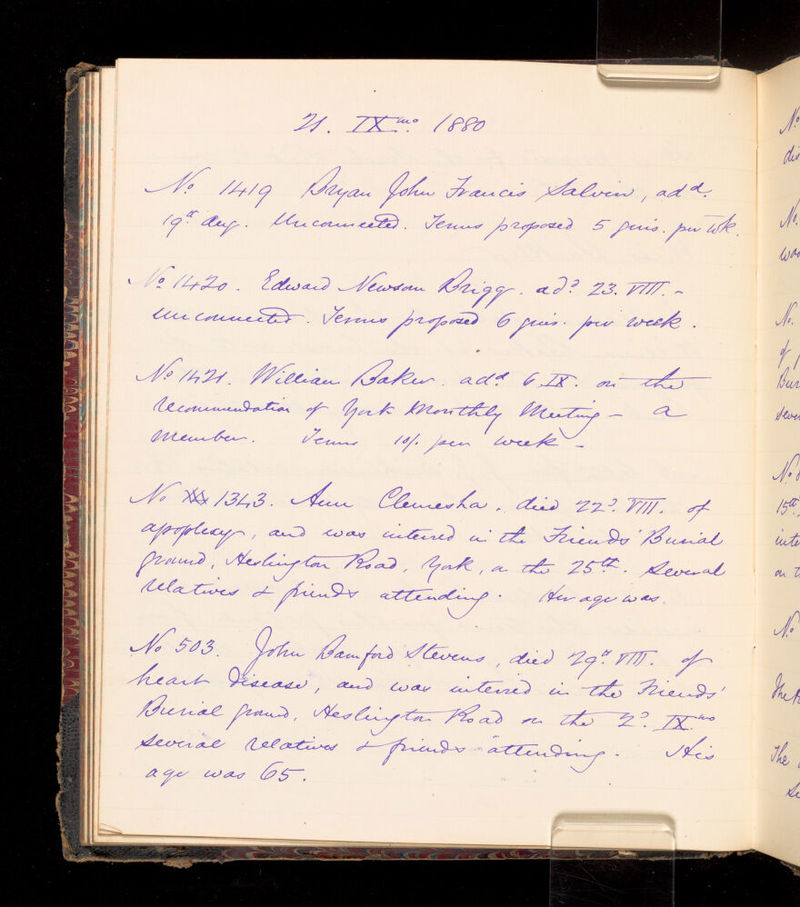 21. IXmo. 1880
No 1419 Bryan John Francis Salvin, add.
19th Aug. Unconnected. Terms proposed 5 guis. per wk.
No 1420. Edward Newsom Brigg. add 23. VIII. -
Unconnected. Terms proposed 6 guis. per week.
No 1421. William Baker. add 6 IX. on the
recommendation of York Monthly Meeting - a
member. Terms 10/. per week -
No 1343. Ann Clemesha. died 22d. VIII. of
apoplexy, and was interred in the Friends' Burial
ground, Heslington Road, York, on the 25th. Several
relatives & friends attending. Her age was.
No 503. John Bamford Stevens, died 29th. VIII. of
heart disease, and was interred in the Friends'
Burial ground, Heslington Road on the 2d. IXmo
several relatives & friends attending. His
age was 65.
No
No.
No.
of
No
15th
on
No
The
The